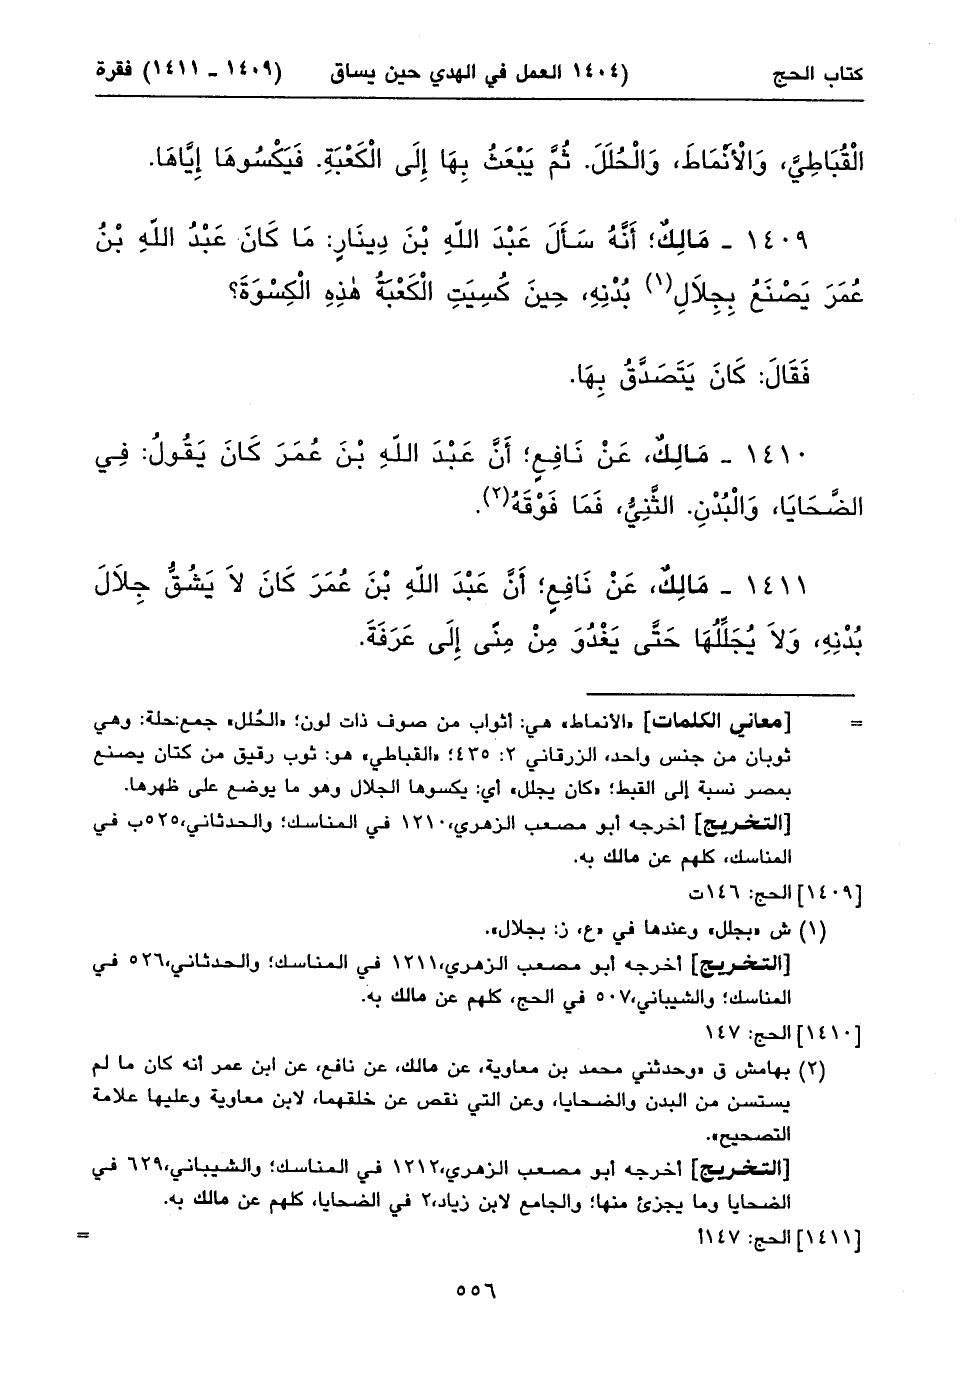 كتاب الحج (١٤٠٤ العمل في الهدي حين يساق (١٤٠٩ - ١٤١١) فقرة
الْقُبَاطِيَّ، وَالْأَنْمَاطَ، وَالْحُلَلَ. ثُمَّ يَبْعَثُ بِهَا إِلَى الْكَعْبَةِ. فَيَكْسُوهَا إِيَّاهَا.
١٤٠٩ - مَالِكٌ؛ أَنَّهُ سَأَلَ عَبْدَ اللّهِ بْنَ دِينَارٍ: مَا كَانَ عَبْدُ اللّهِ بْنُ
عُمَرَ يَصْنَعُ بِجِلَالِ(١) بُدْنِهِ، حِينَ كُسِيَتِ الْكَعْبَةُ هٰذِهِ الْكِسْوَةَ؟
فَقَالَ: كَانَ يَتَصَدَّقُ بِهَا.
١٤١٠ - مَالِكٌ، عَنْ نَافِعٍ؛ أَنَّ عَبْدَ اللّهِ بْنَ عُمَرَ كَانَ يَقُولُ: فِي
الضَّحَايَا، وَالْبُدْنِ. الثَّنِيُّ، فَمَا فَوْقَهُ(٢).
١٤١١ - مَالِكٌ، عَنْ نَافِعٍ؛ أَنَّ عَبْدَ اللّهِ بْنَ عُمَرَ كَانَ لاَ يَشُقُّ جِلَالَ
بُدْنِهِ، وَلاَ يُجَلِّلُهَا حَتَّى يَغْدُوَ مِنْ مِنًى إِلَى عَرَفَةَ.
= [معاني الكلمات] «الانماط» هي: أثواب من صوف ذات لون؛ «الحُلل» جمع:حلة: وهي
ثوبان من جنس واحد، الزرقاني ٢: ٤٣٥؛ «القباطي» هو: ثوب رقيق من كتان يصنع
بمصر نسبة إلى القبط؛ «كان يجلل» أي: يكسوها الجلال وهو ما يوضع على ظهرها.
[التخريج] أخرجه أبو مصعب الزهري،١٢١٠ في المناسك؛ والحدثاني،٥٢٥ب في
المناسك، كلهم عن مالك به.
[١٤٠٩] الحج: ١٤٦ت
(١) ش «بجلل» وعندها في «ع، ز: بجلال».
[التخريج] أخرجه أبو مصعب الزهري،١٢١١ في المناسك؛ والحدثاني،٥٢٦ في
المناسك؛ والشيباني،٥٠٧ في الحج، كلهم عن مالك به.
[١٤١٠] الحج: ١٤٧
(٢) بهامش ق «وحدثني محمد بن معاوية، عن مالك، عن نافع، عن ابن عمر أنه كان ما لم
يستسن من البدن والضحايا، وعن التي نقص عن خلقهما، لابن معاوية وعليها علامة
التصحيح».
[التخريج] أخرجه أبو مصعب الزهري،١٢١٢ في المناسك؛ والشيباني،٦٢٩ في
الضحايا وما يجزئ منها؛ والجامع لابن زياد،٢ في الضحايا، كلهم عن مالك به.
[١٤١١] الحج: ١٤٧أ =
٥٥٦